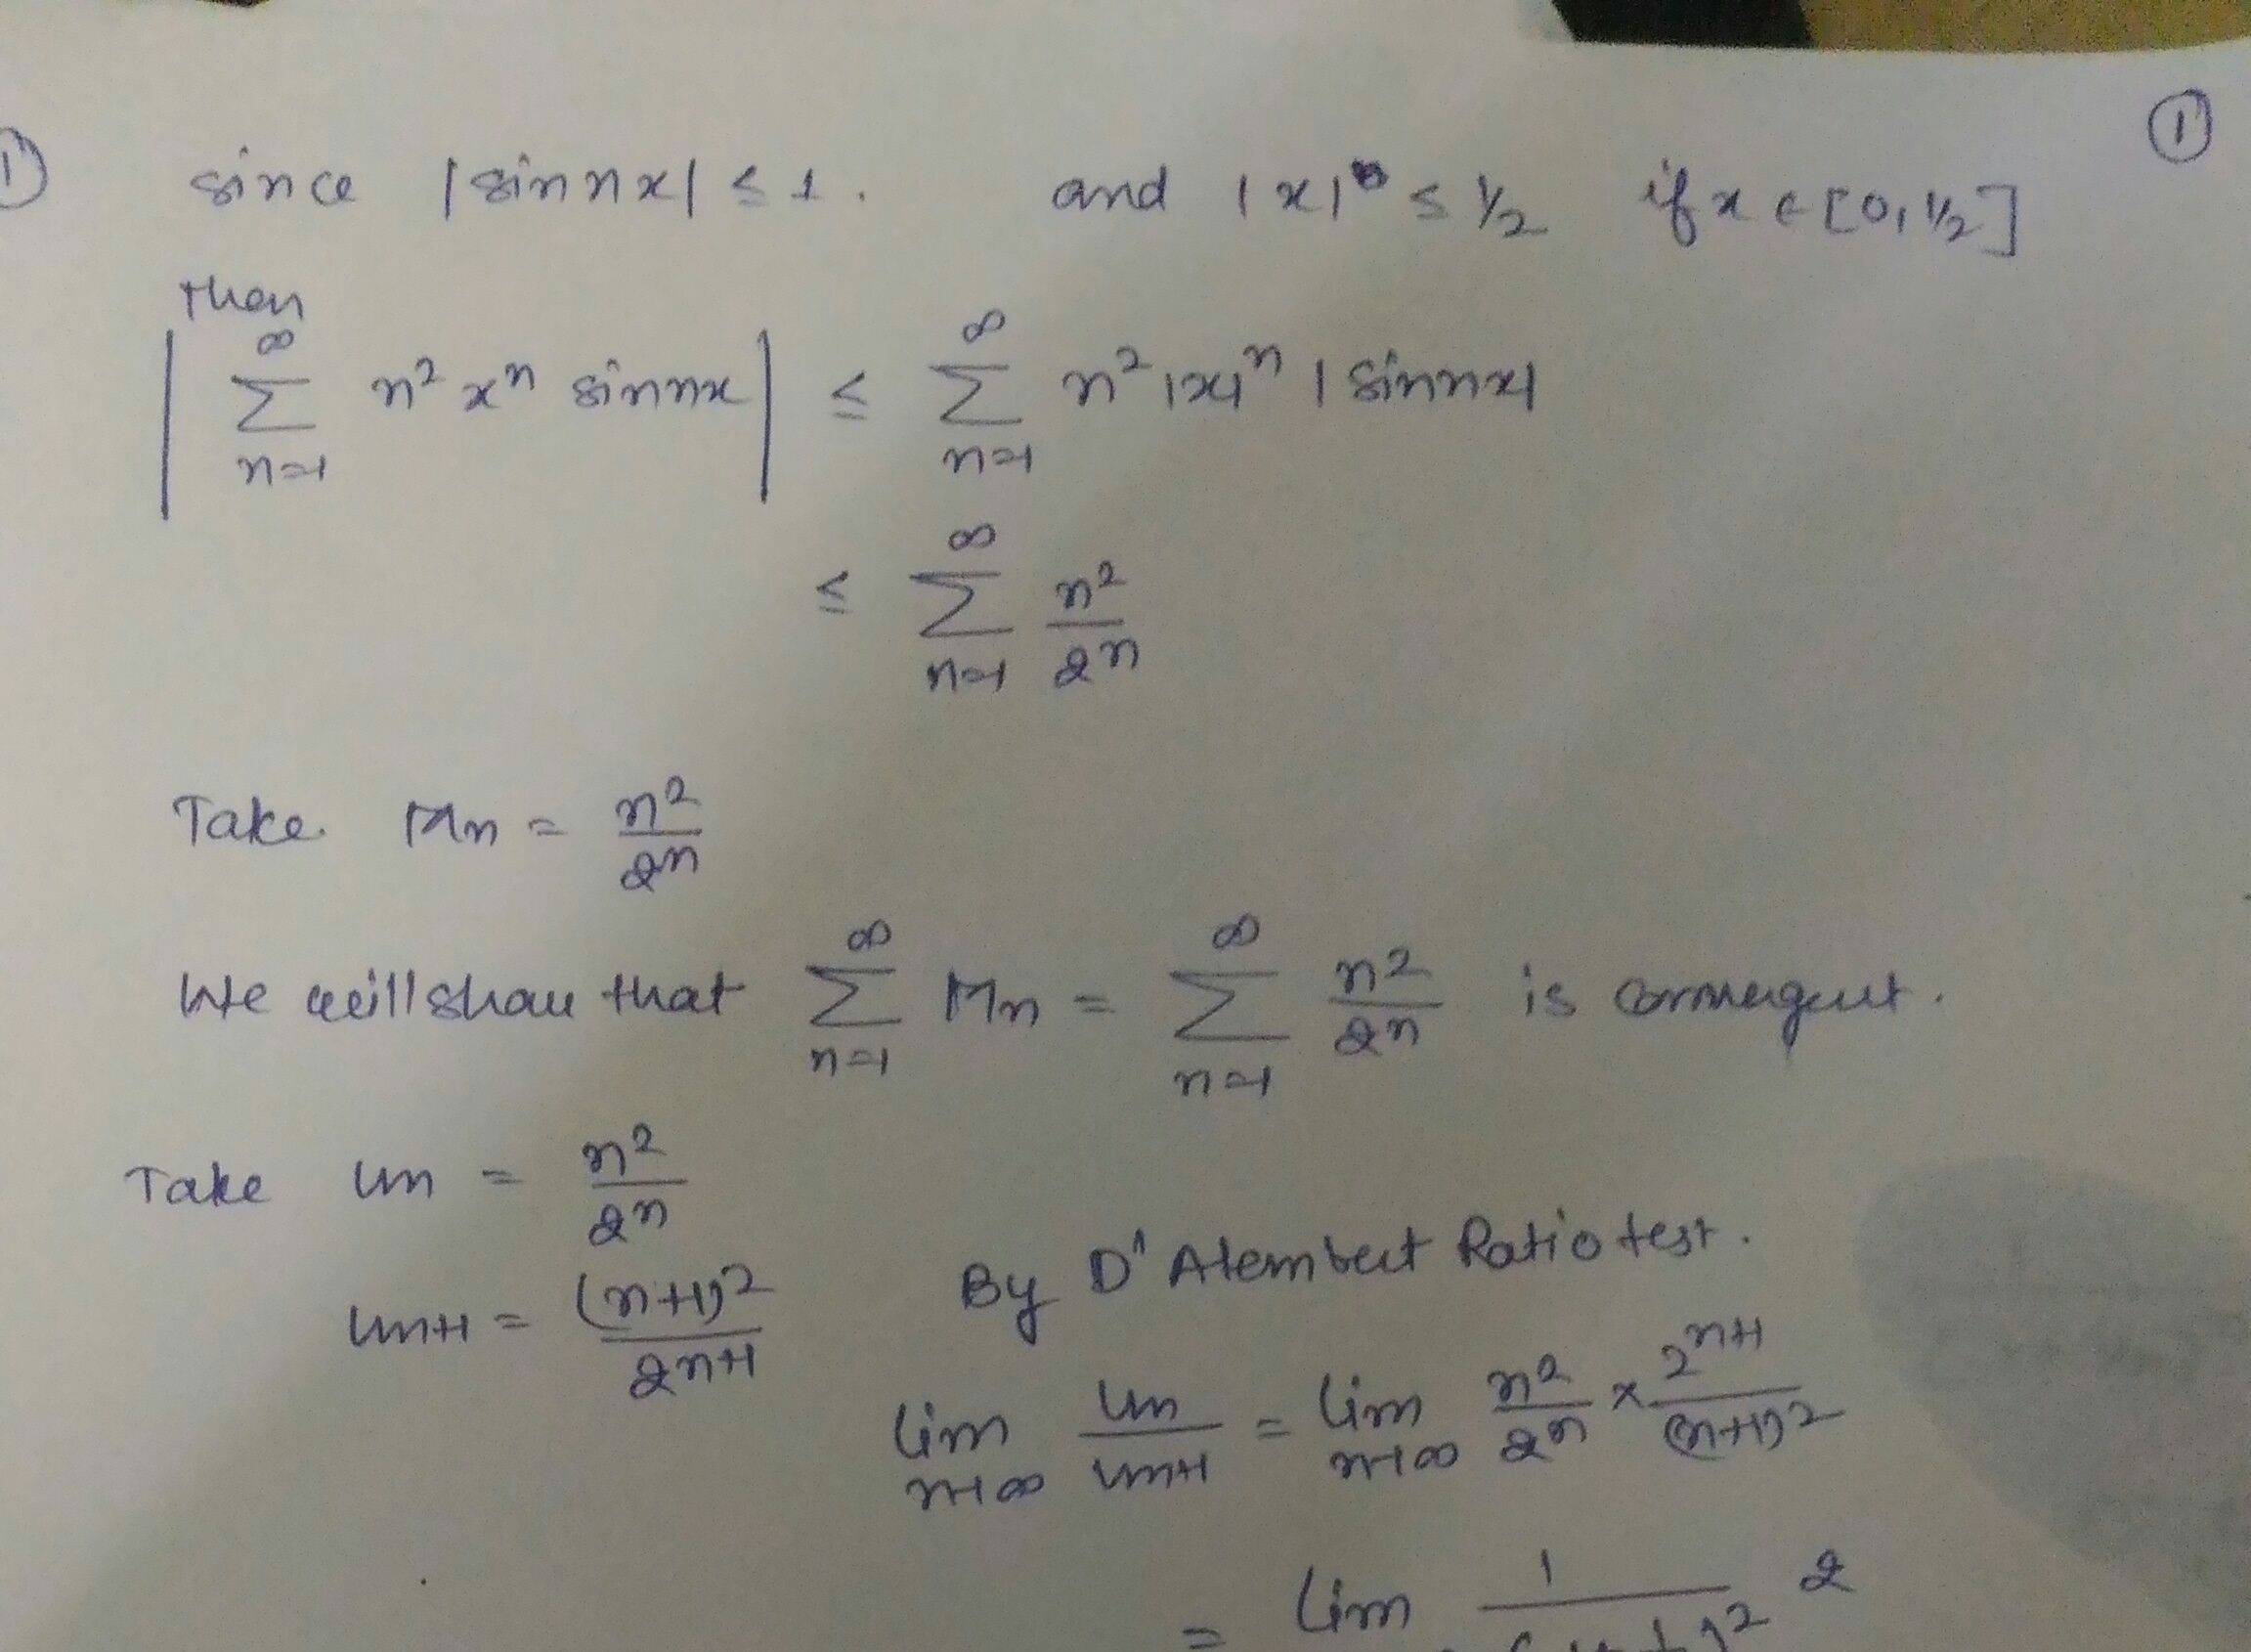 ①
1) since |sin nx| ≤ 1. and |x| ≤ 1/2 if x ∈ [0, 1/2]
Then
|∑_{n=1}^{∞} n² xⁿ sin nx| ≤ ∑_{n=1}^{∞} n² |x|ⁿ |sin nx|
≤ ∑_{n=1}^{∞} n²/2ⁿ
Take Mn = n²/2ⁿ
We will show that ∑_{n=1}^{∞} Mn = ∑_{n=1}^{∞} n²/2ⁿ is convergent.
Take un = n²/2ⁿ
un+1 = (n+1)²/2ⁿ⁺¹
By D'Alembert Ratio test.
lim_{n→∞} un/un+1 = lim_{n→∞} n²/2ⁿ × 2ⁿ⁺¹/(n+1)²
= lim 1/ 2